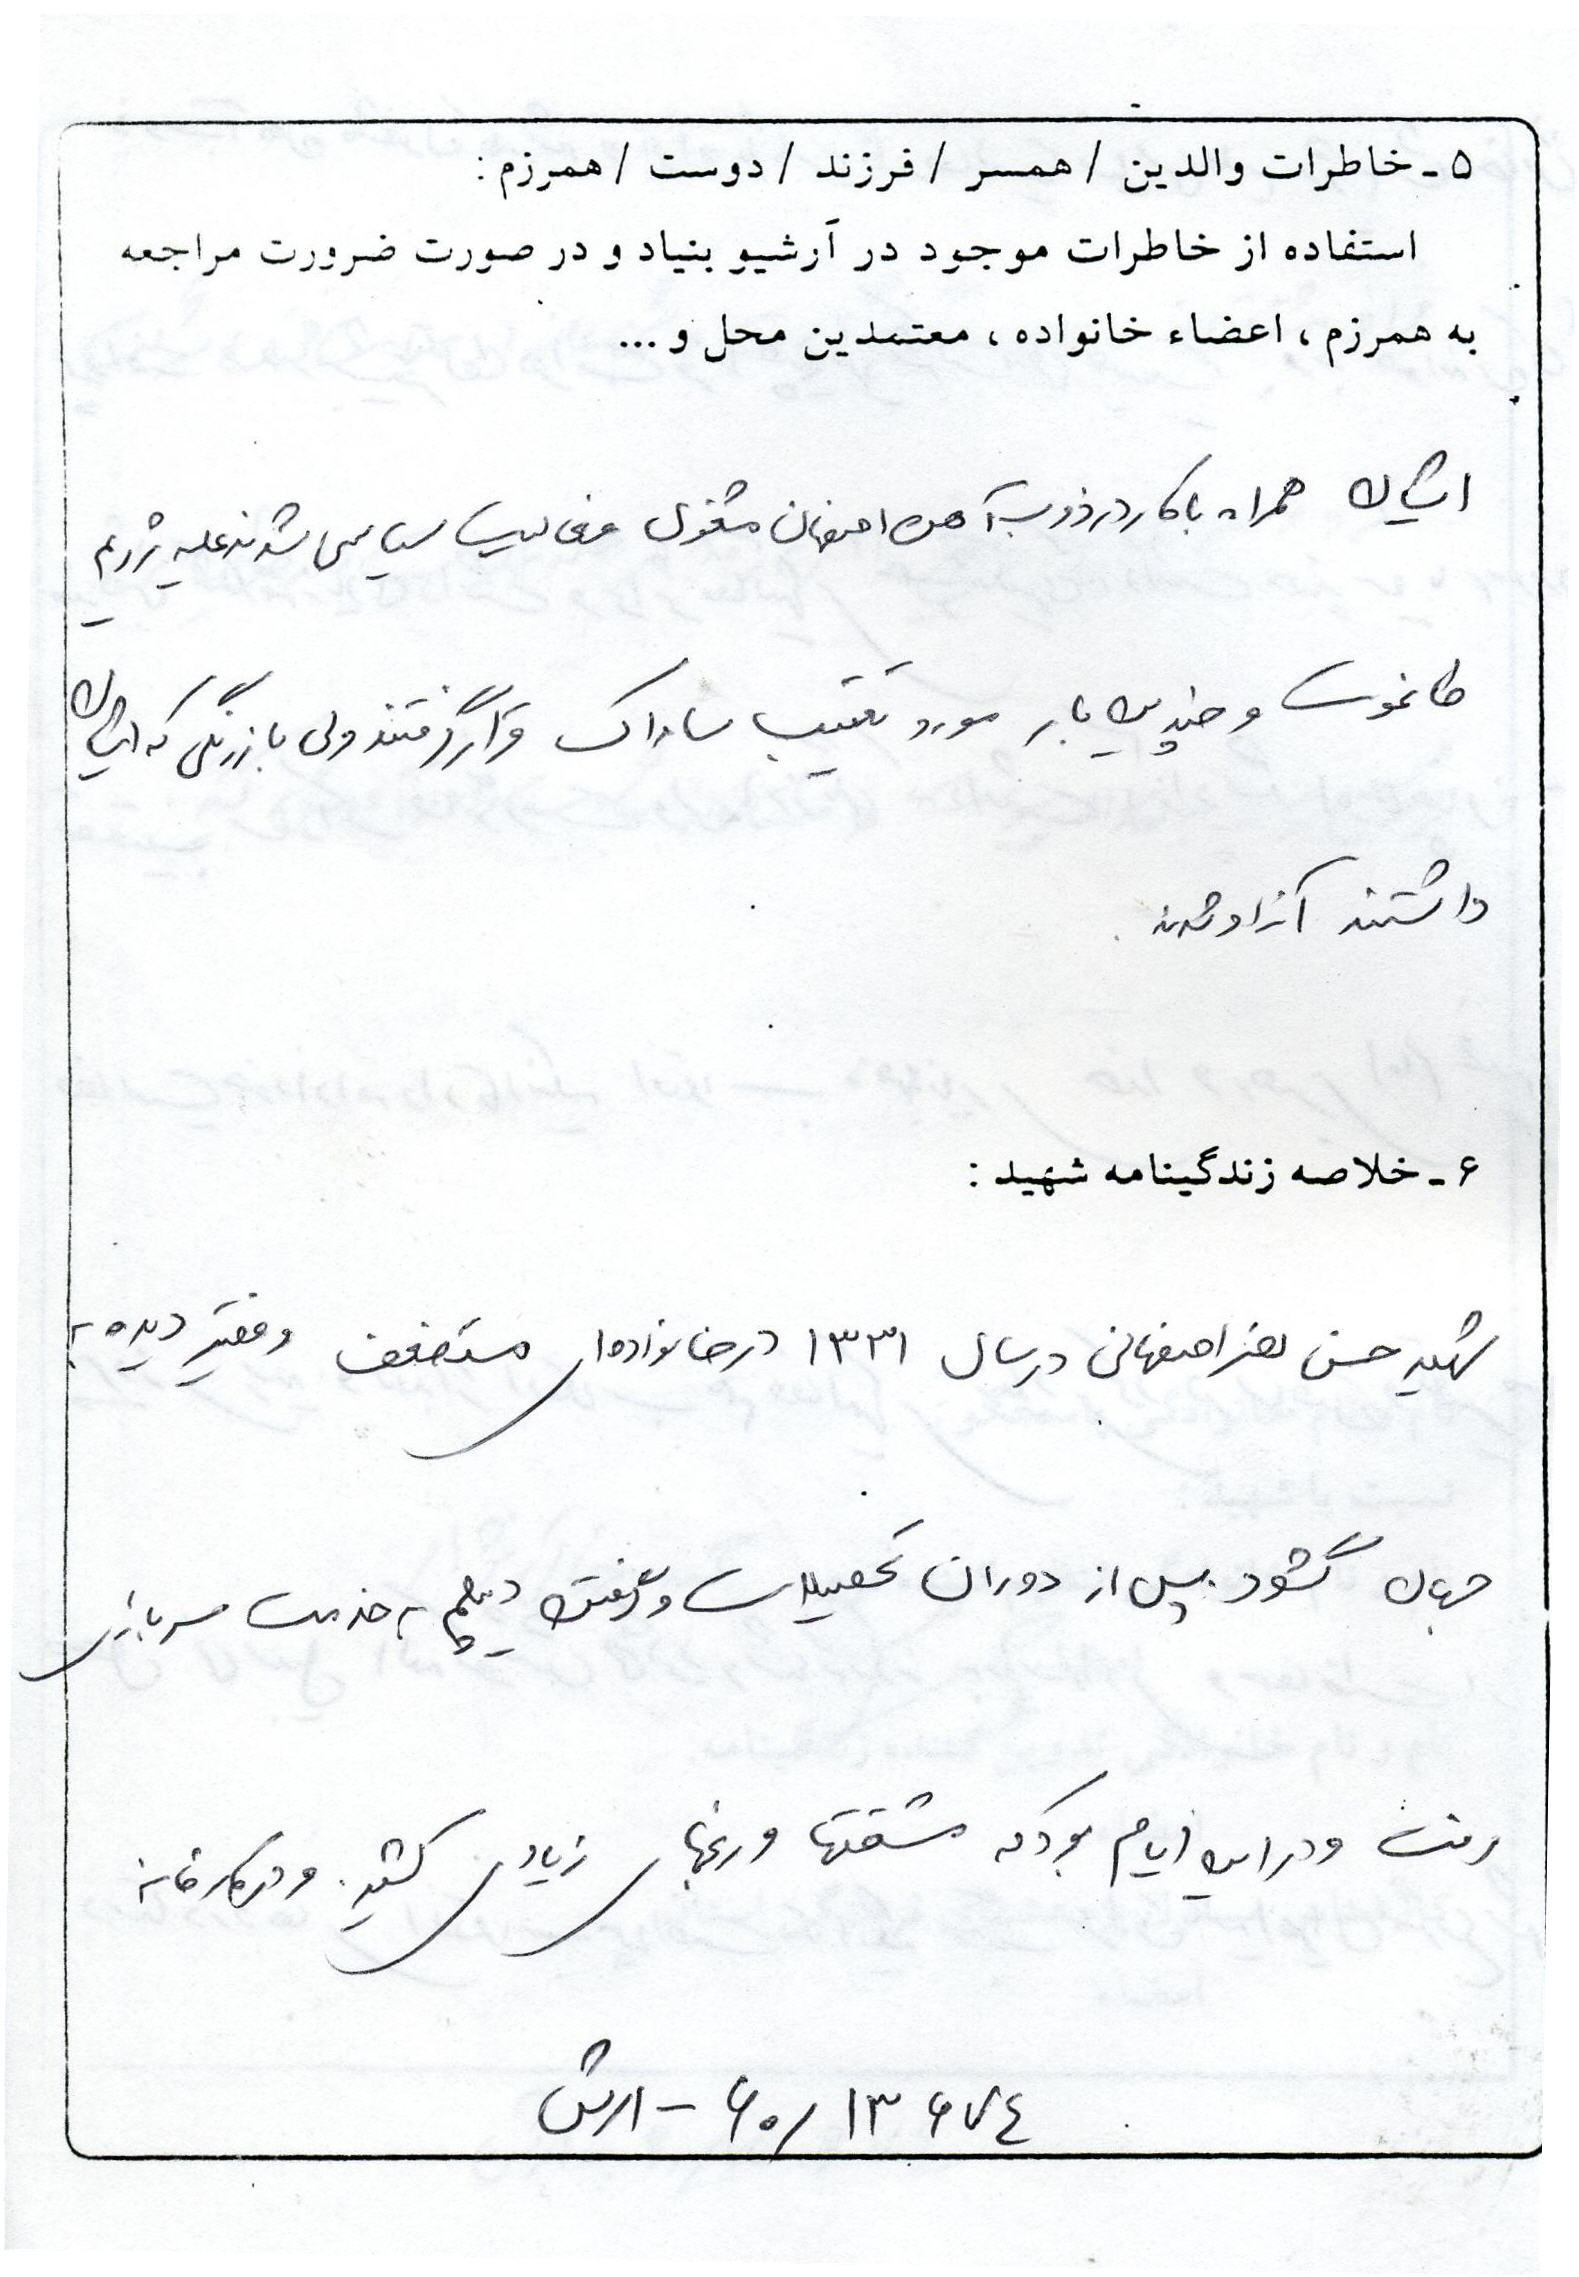 ۵ - خاطرات والدین / همسر / فرزند / دوست / همرزم :
استفاده از خاطرات موجود در آرشیو بنیاد و در صورت ضرورت مراجعه
به همرزم ، اعضاء خانواده ، معتمدین محل و ...
ایشان همراه با کار در ذوب آهن اصفهان مشغول فعالیت سیاسی شدند علیه رژیم
طاغوت و چندین بار مورد تعقیب ساواک قرار گرفتند ولی با زرنگی که ایشان
داشتند آزاد شدند .
۶ - خلاصه زندگینامه شهید :
شهید حسن نصر اصفهانی در سال ۱۳۳۱ در خانواده ای مستضعف و فقیر دیده به
جهان گشود . پس از دوران تحصیلات و گرفتن دیپلم به خدمت سربازی
رفت و در این ایام بود که مشقتها و رنجهای زیادی کشید . و در کارخانه
۶۰/۱۳۶۷۴ - ارتش